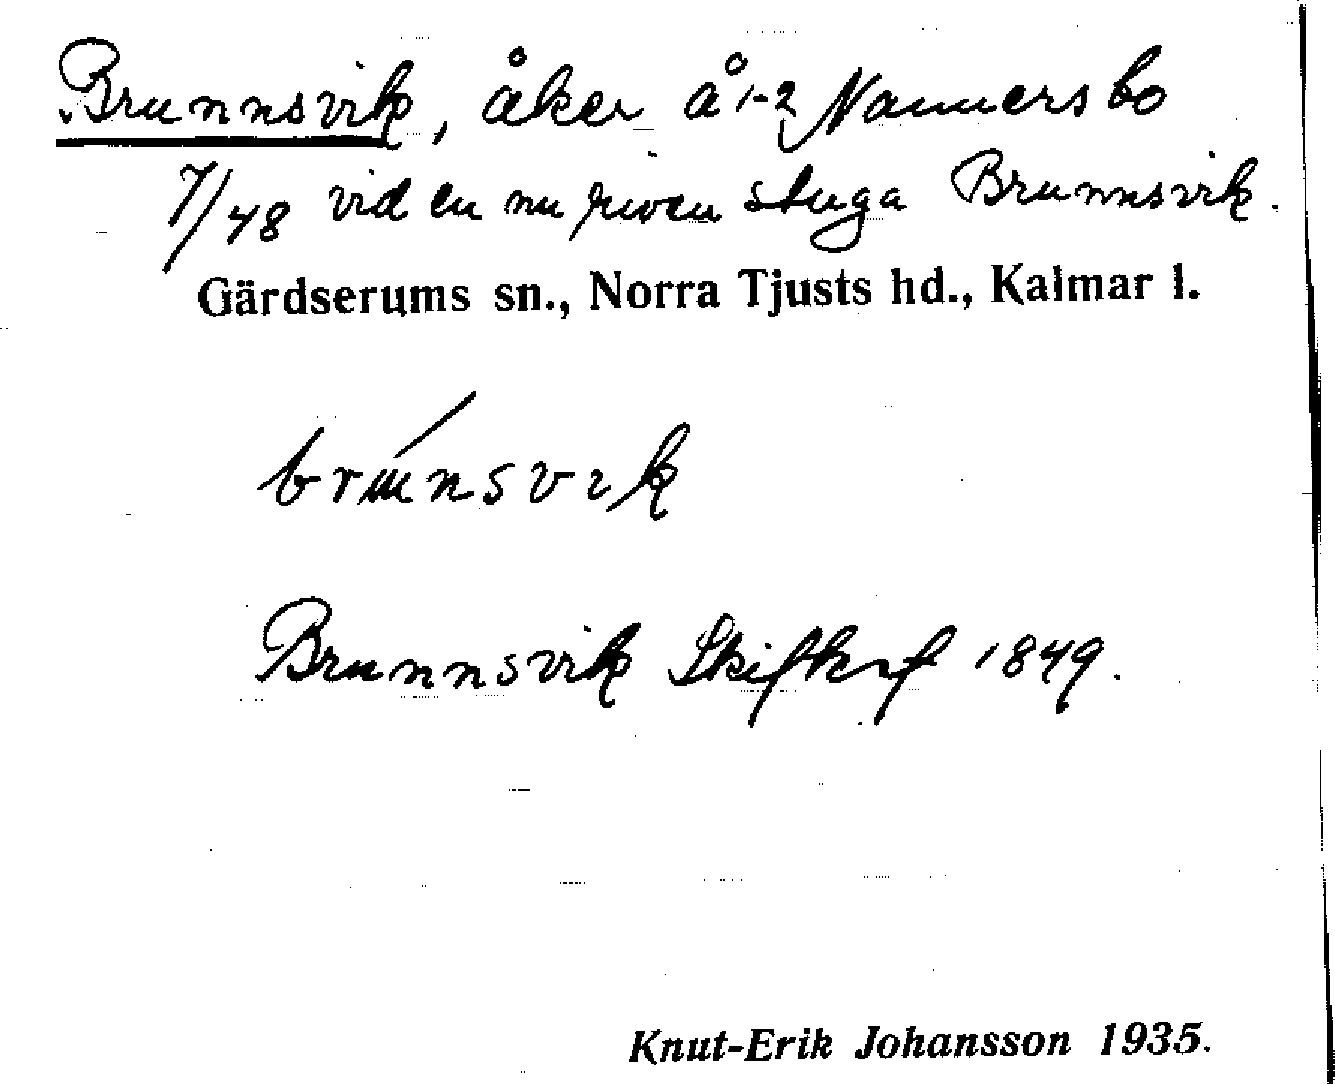 Brunnsvik, åker å 1-2 Nannersbo
7/48 vid en nu riven stuga Brunnsvik.
Gärdserums sn., Norra Tjusts hd., Kalmar l.
brúnsvik
Brunnsvik Skifkrf 1849.
Knut-Erik Johansson 1935.